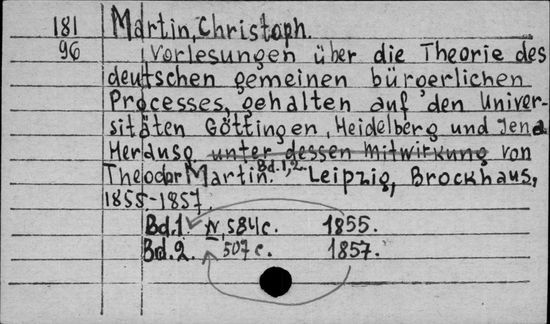 181 Martin, Christoph.
96 Vorlesungen über die Theorie des
deutschen gemeinen bürgerlichen
Processes, gehalten auf den Univer-
sitäten Göttingen, Heidelberg und Jena
Herausg. unter dessen Mitwirkung von
Theodor Martin. Bd. 1, 2. Leipzig, Brockhaus,
1855-1857.
Bd. 1. IV, 584 c. 1855.
Bd. 2. 507 c. 1857.